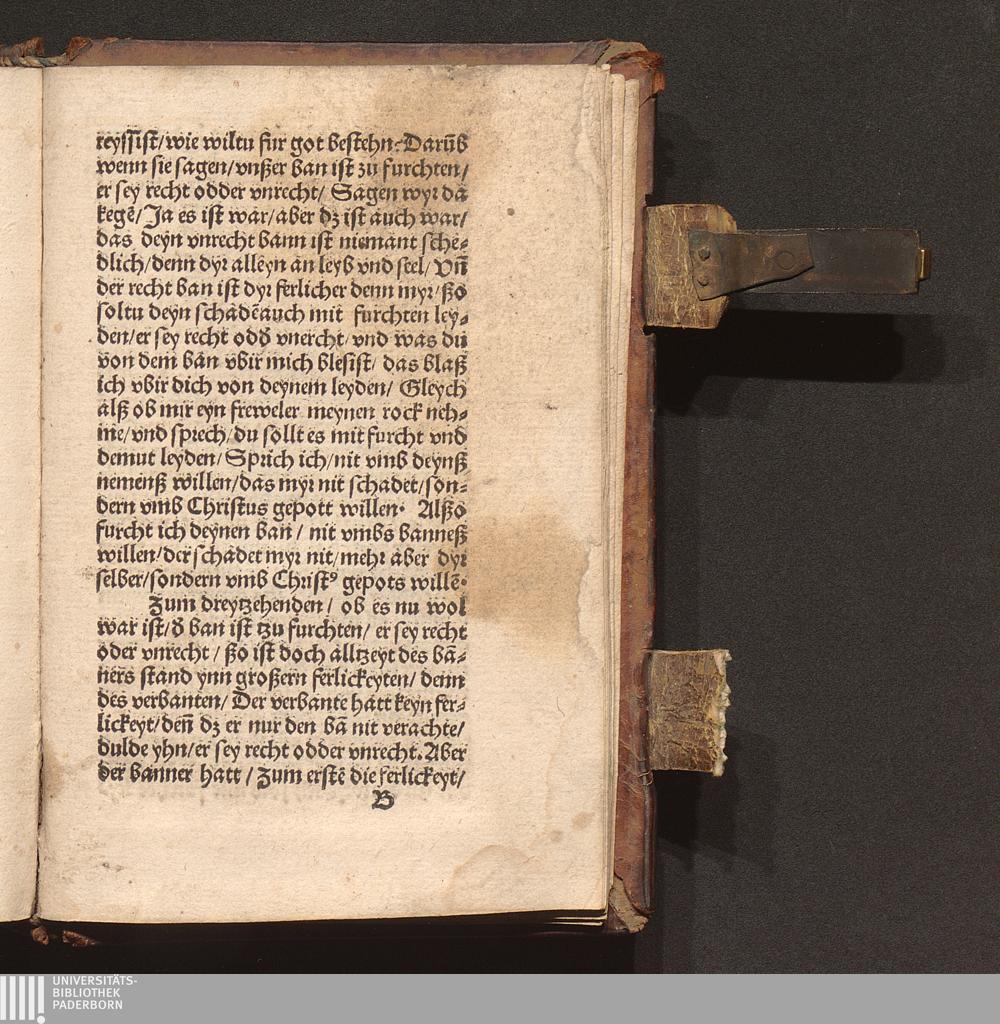 reyſſiſt/wie wiltu fur got beſtehn. Darūb
wenn ſie ſagen/vnßer ban iſt zu furchten/
er ſey recht odder vnrecht/ Sagen wyr da
kegē/Ja es iſt war/aber dz iſt auch war/
das deyn vnrecht bann iſt niemant ſche⸗
dlich/denn dyr alleyn an leyb vnd ſeel/ Vn̄
der recht ban iſt dyr ferlicher denn myr/ßo
ſoltu deyn ſchadē auch mit furchten ley⸗
den/er ſey recht odď vnercht/vnd was du
von dem ban vbir mich bleſiſt/ das blaß
ich vbir dich von deynem leyden/ Gleych
alß ob mir eyn freweler meynen rock neh⸗
me/vnd ſprech/du ſollt es mit furcht vnd
demut leyden/Sprich ich/nit vmb deynß
nemenß willen/das myr nit ſchadet/ſon⸗
dern vmb Chriſtus gepott willen. Alßo
furcht ich deynen ban/ nit vmbs banneß
willen/der ſchadet myr nit/mehr aber dyr
ſelber/ſondern vmb Chriſtꝰ gepots willē.
Zum dreytzehenden/ ob es nu wol
war iſt/ď ban iſt tzu furchten/ er ſey recht
oder vnrecht/ ßo iſt doch alltzeyt des bā⸗
ners ſtand ynn großern ferlickeyten/ denn
des verbanten/ Der verbante hatt keyn fer⸗
lickeyt/den̄ dz er nur den bā nit verachte/
dulde yhn/er ſey recht odder vnrecht. Aber
der banner hatt/ Zum erſtē die ferlickeyt/
B
UNIVERSITÄTS-
BIBLIOTHEK
PADERBORN